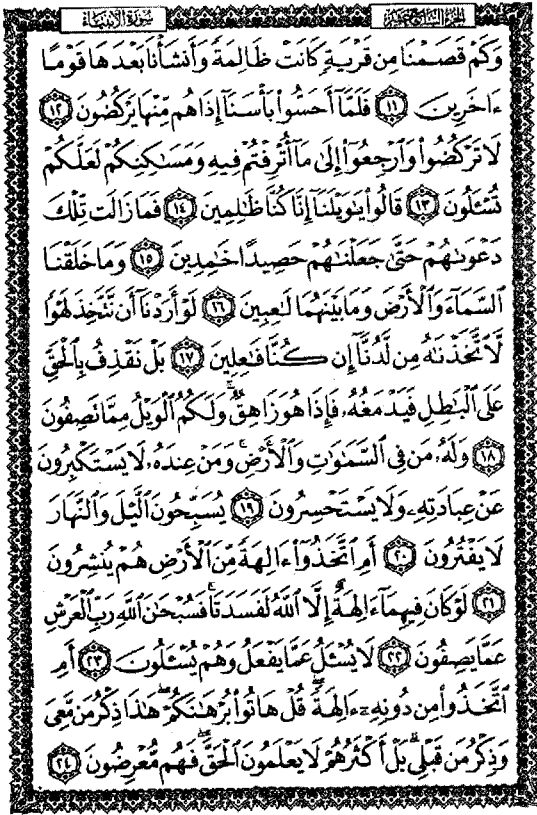 سُورَةُ الأَنبِيَاءِ الجُزْءُ السَّابِعَ عَشَرَ
وَكَمْ قَصَمْنَا مِن قَرْيَةٍ كَانَتْ ظَالِمَةً وَأَنشَأْنَا بَعْدَهَا قَوْمًا
ءَاخَرِينَ ﴿١١﴾ فَلَمَّآ أَحَسُّوا۟ بَأْسَنَآ إِذَا هُم مِّنْهَا يَرْكُضُونَ ﴿١٢﴾
لَا تَرْكُضُوا۟ وَٱرْجِعُوٓا۟ إِلَىٰ مَآ أُتْرِفْتُمْ فِيهِ وَمَسَـٰكِنِكُمْ لَعَلَّكُمْ
تُسْـَٔلُونَ ﴿١٣﴾ قَالُوا۟ يَـٰوَيْلَنَآ إِنَّا كُنَّا ظَـٰلِمِينَ ﴿١٤﴾ فَمَا زَالَت تِّلْكَ
دَعْوَىٰهُمْ حَتَّىٰ جَعَلْنَـٰهُمْ حَصِيدًا خَـٰمِدِينَ ﴿١٥﴾ وَمَا خَلَقْنَا
ٱلسَّمَآءَ وَٱلْأَرْضَ وَمَا بَيْنَهُمَا لَـٰعِبِينَ ﴿١٦﴾ لَوْ أَرَدْنَآ أَن نَّتَّخِذَ لَهْوًا
لَّٱتَّخَذْنَـٰهُ مِن لَّدُنَّآ إِن كُنَّا فَـٰعِلِينَ ﴿١٧﴾ بَلْ نَقْذِفُ بِٱلْحَقِّ
عَلَى ٱلْبَـٰطِلِ فَيَدْمَغُهُۥ فَإِذَا هُوَ زَاهِقٌ ۚ وَلَكُمُ ٱلْوَيْلُ مِمَّا تَصِفُونَ
﴿١٨﴾ وَلَهُۥ مَن فِى ٱلسَّمَـٰوَٰتِ وَٱلْأَرْضِ ۚ وَمَنْ عِندَهُۥ لَا يَسْتَكْبِرُونَ
عَنْ عِبَادَتِهِۦ وَلَا يَسْتَحْسِرُونَ ﴿١٩﴾ يُسَبِّحُونَ ٱلَّيْلَ وَٱلنَّهَارَ
لَا يَفْتُرُونَ ﴿٢٠﴾ أَمِ ٱتَّخَذُوٓا۟ ءَالِهَةً مِّنَ ٱلْأَرْضِ هُمْ يُنشِرُونَ
﴿٢١﴾ لَوْ كَانَ فِيهِمَآ ءَالِهَةٌ إِلَّا ٱللَّهُ لَفَسَدَتَا ۚ فَسُبْحَـٰنَ ٱللَّهِ رَبِّ ٱلْعَرْشِ
عَمَّا يَصِفُونَ ﴿٢٢﴾ لَا يُسْـَٔلُ عَمَّا يَفْعَلُ وَهُمْ يُسْـَٔلُونَ ﴿٢٣﴾ أَمِ
ٱتَّخَذُوا۟ مِن دُونِهِۦٓ ءَالِهَةً ۖ قُلْ هَاتُوا۟ بُرْهَـٰنَكُمْ ۖ هَـٰذَا ذِكْرُ مَن مَّعِىَ
وَذِكْرُ مَن قَبْلِى ۗ بَلْ أَكْثَرُهُمْ لَا يَعْلَمُونَ ٱلْحَقَّ ۖ فَهُم مُّعْرِضُونَ ﴿٢٤﴾